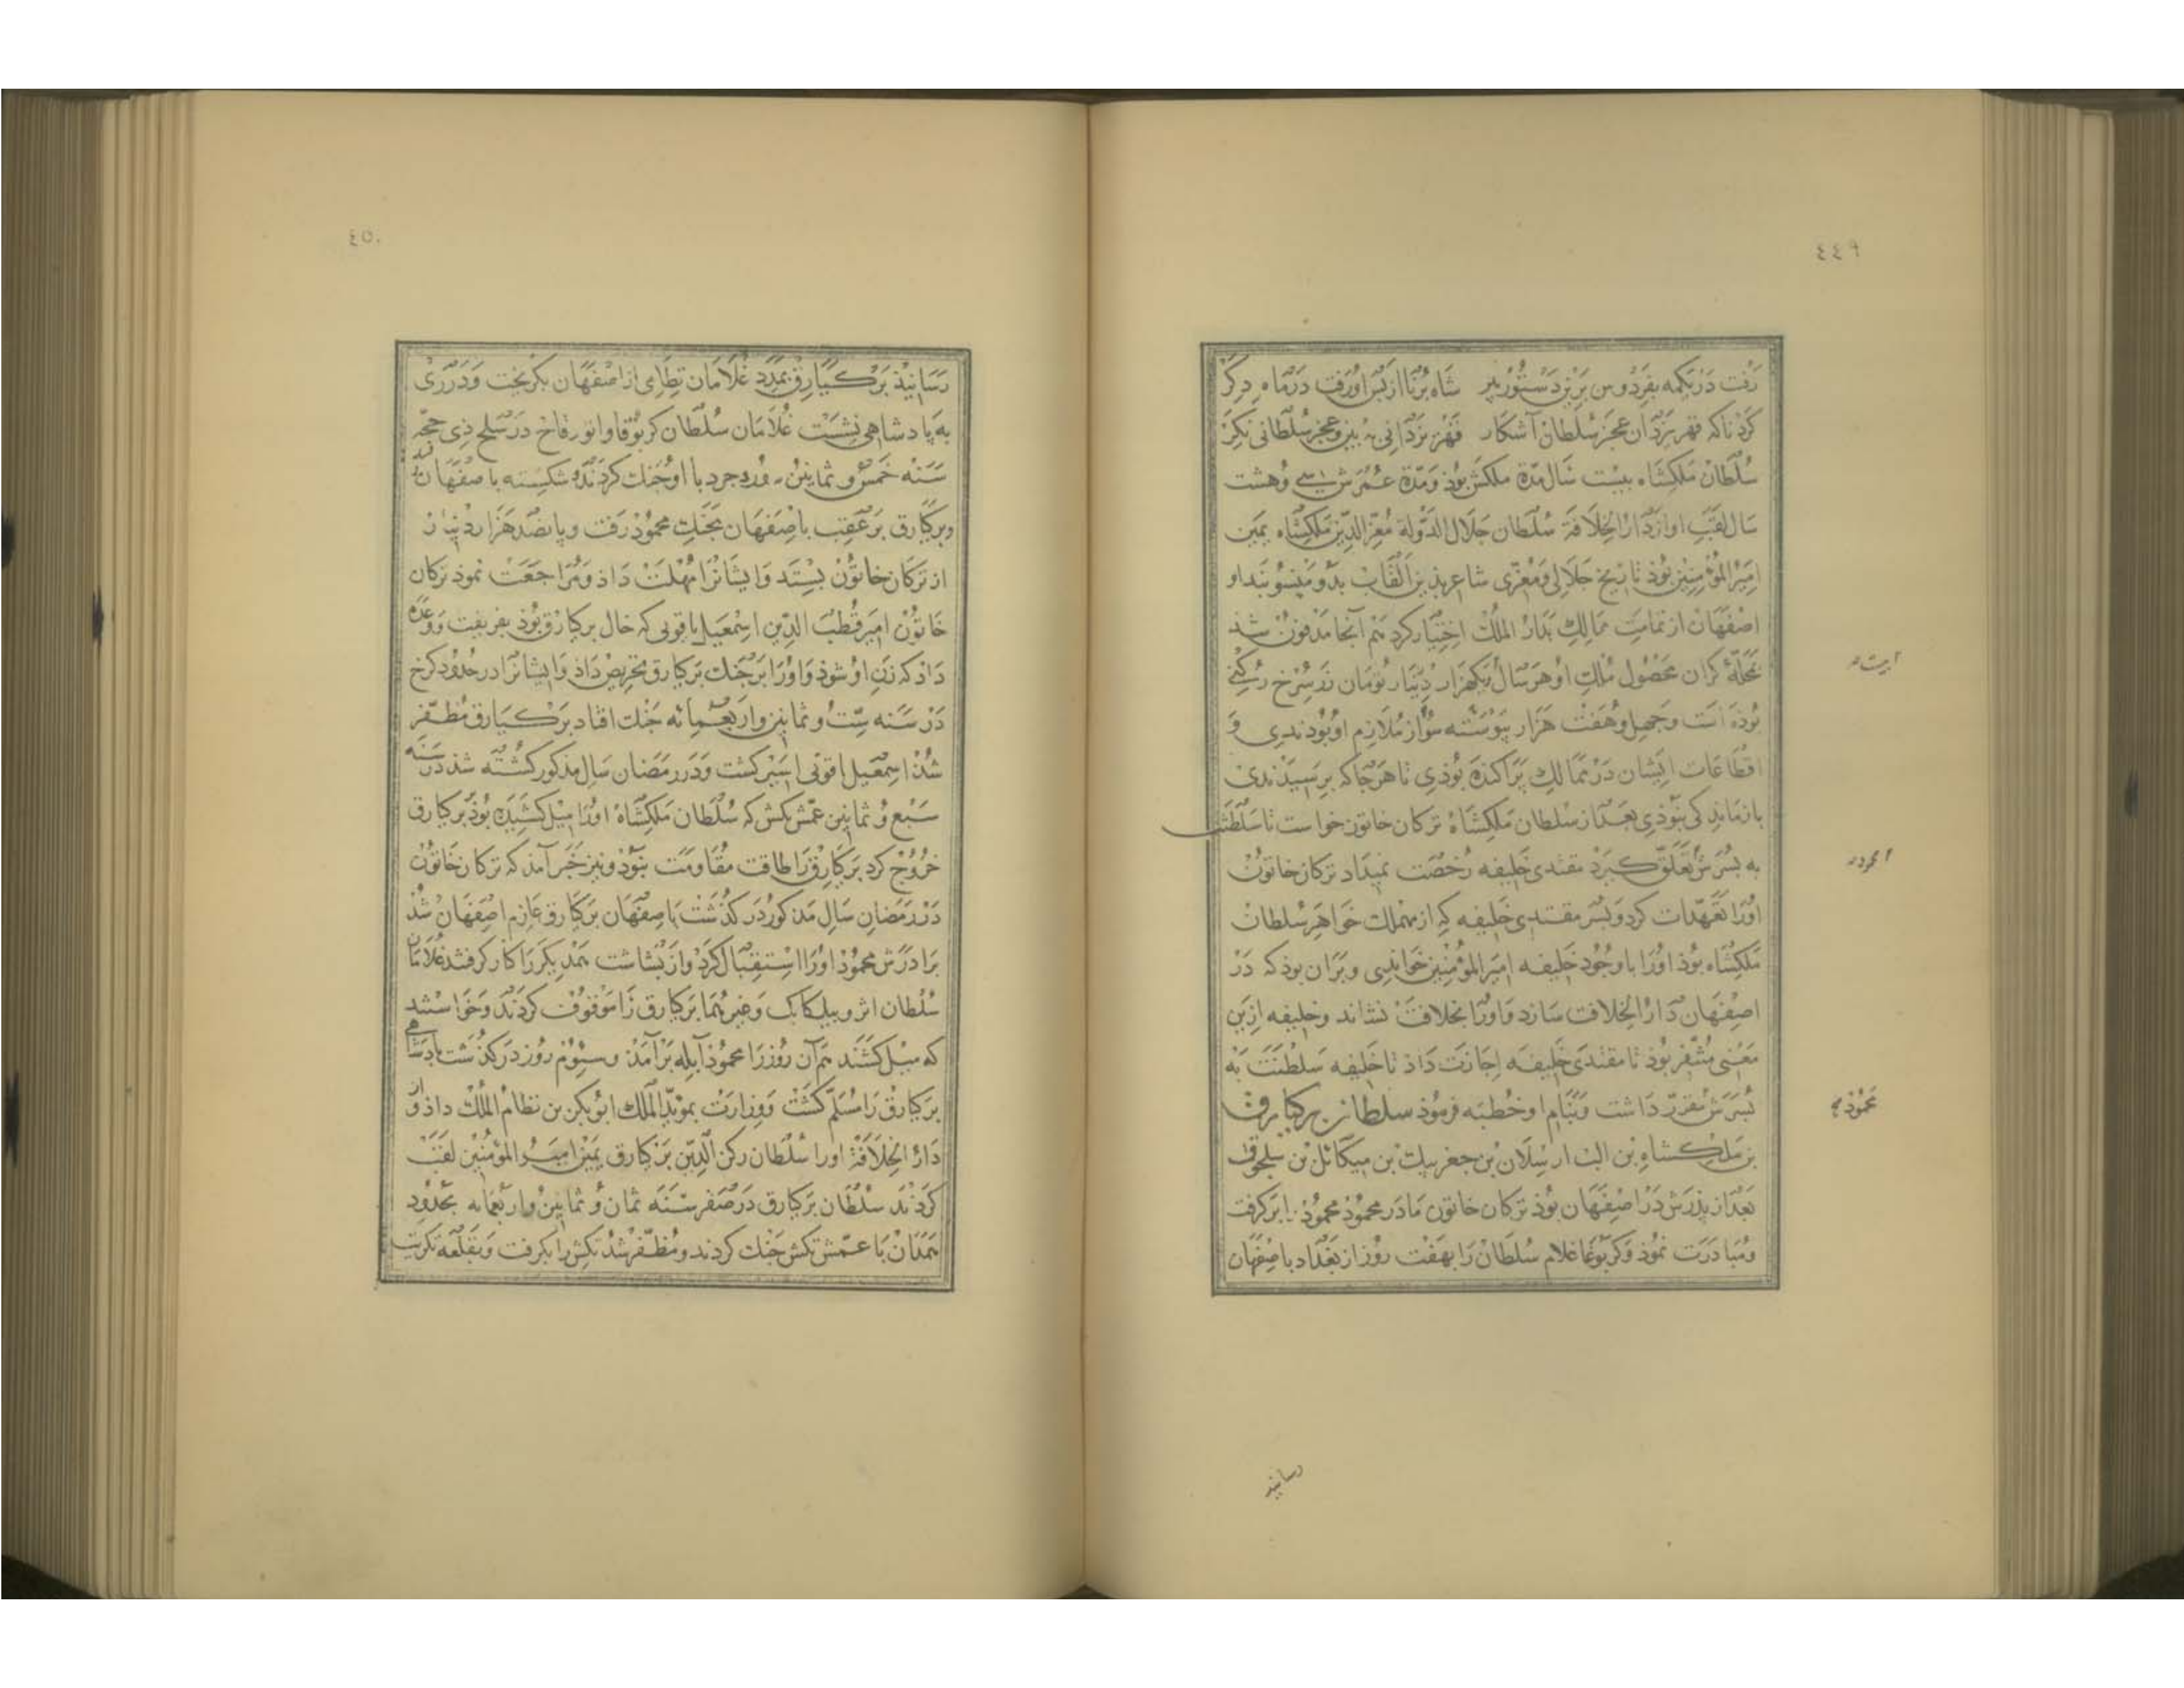 ٤٤٩
رفت در یکمه بفردوس برین دستور پیر شاه برنا از پس او رفت در ماه دکر
کرد ناکه قهر یزدان عجز سلطان آشکار قهر یزدانی ببین و عجز سلطانی نکر
سُلطان ملکشاه بیست سال مدّة ملکش بُوذ و مدّة عمرش سی و هشت
سال لقب او از دار الخلافة سُلطان جلال الدّولة مُعزّ الدّین ملکشاه یمین
امیر المؤمنین بُوذ تاریخ جلالی و مُعزّی شاعر بذین القاب بدو منسوبند او
اصفهان از تمامت ممالک بدار الملک اختیار کرد هم آنجا مدفون شد
بمحلّهٔ کران محصُول مُلک او هر سال یکهزار دینار تومان زر سُرخ رکنی
بُوذه است و چهل و هفت هزار پیوسته سوار مُلازم او بُودندی و
اقطاعات ایشان در ممالک پراکنده بُوذی تا هرجا که برسیدندی
بازماند کی نبوذی بعد از سلطان ملکشاه ترکان خاتون خواست تا سلطنت
به پسرش تعلّق کیرد مقتدی خلیفه رُخصت نمیداد ترکان خاتون
اورا تعهّدات کرد و پسر مقتدی خلیفه که از مهملک خواهر سُلطان
ملکشاه بوذ اورا با وجُود خلیفه امیر المؤمنین خواندی و بر آن بوذ که در
اصفهان دار الخلافت سازد و اورا بخلافت نشاند و خلیفه ازین
معنی مُتنفّر بُوذ تا مقتدی خلیفه اجازت داذ تا خلیفه سلطنت به
پسرش مقرّر داشت و بنام او خُطبه فرمُوذ سلطان برکیارق
بن ملکشاه بن الب ارسلان بن جغربیک بن میکائل بن سلجوق
بعد از پذرش در اصفهان بُوذ ترکان خاتون مادر محمُوذ محمُوذ را برکرفت
و مُبادرت نمُوذ و کربُوغا غلام سُلطان را بهفت روز از بغداد باصفهان
محمُوذ
رسانید
٤٥٠
رسانیذ برکیارق بمدد غُلامان نظامی از اصفهان بکریخت و در ری
به پادشاهی نشست غُلامان سُلطان کربوقا و انور قاخ در سلخ ذی حجّه
سنه خمس و ثمانین بروجرد با او جنک کردند و شکسته باصفهان
و برکیارق بر عقب باصفهان بجنک محمُوذ رفت و پانصد هزار دینار
از ترکان خاتُون بستد و ایشانرا مُهلت داذ و مُراجعت نموذ ترکان
خاتُون امیر قُطب الدّین اسمعیل یاقوتی که خال برکیارق بُوذ بفریفت و وعده
داد که زن او شوذ و اورا بر جنک برکیارق تحریض داذ و ایشانرا در حُدود کرخ
در سنه ستّ و ثمانین و اربعمائه جنک افتاد برکیارق مُظفّر
شُذ اسمعیل یاقوتی اسیر کشت و در رمضان سال مذکور کشته شذ در سنه
سبع و ثمانین عمّش تکش که سُلطان ملکشاه اورا میل کشیده بُوذ بر برکیارق
خرُوج کرد برکیارق را طاقت مُقاومت نبوذ و نیز خبر آمذ که ترکان خاتُون
در رمضان سال مذکور درکذشت باصفهان برکیارق عازم اصفهان شُذ
برادرش محمُوذ اورا استقبال کرد و از بشاشت همدیکر را کنار کرفتند غُلامان
سُلطان اثر و بیلکابک و غیرهُما برکیارق را موقوف کردند و خواستند
که میل کشند هم آن روز را محمُوذ آبله برآمذ و سیوُم روز درکذشت پادشاهی
برکیارق را مُسلّم کشت و وزارت بمویّد المُلک ابُوبکر بن نظام المُلک داذ و از
دار الخلافة اورا سُلطان رکن الدّین برکیارق یمین امیر المؤمنین لقب
کردند سُلطان برکیارق در صفر سنه ثمان و ثمانین و اربعمائه بحدود
همدان با عمّش تکش جنک کردند و مُظفّر شُذ تکش را بکرفت و بقلعه تکریت